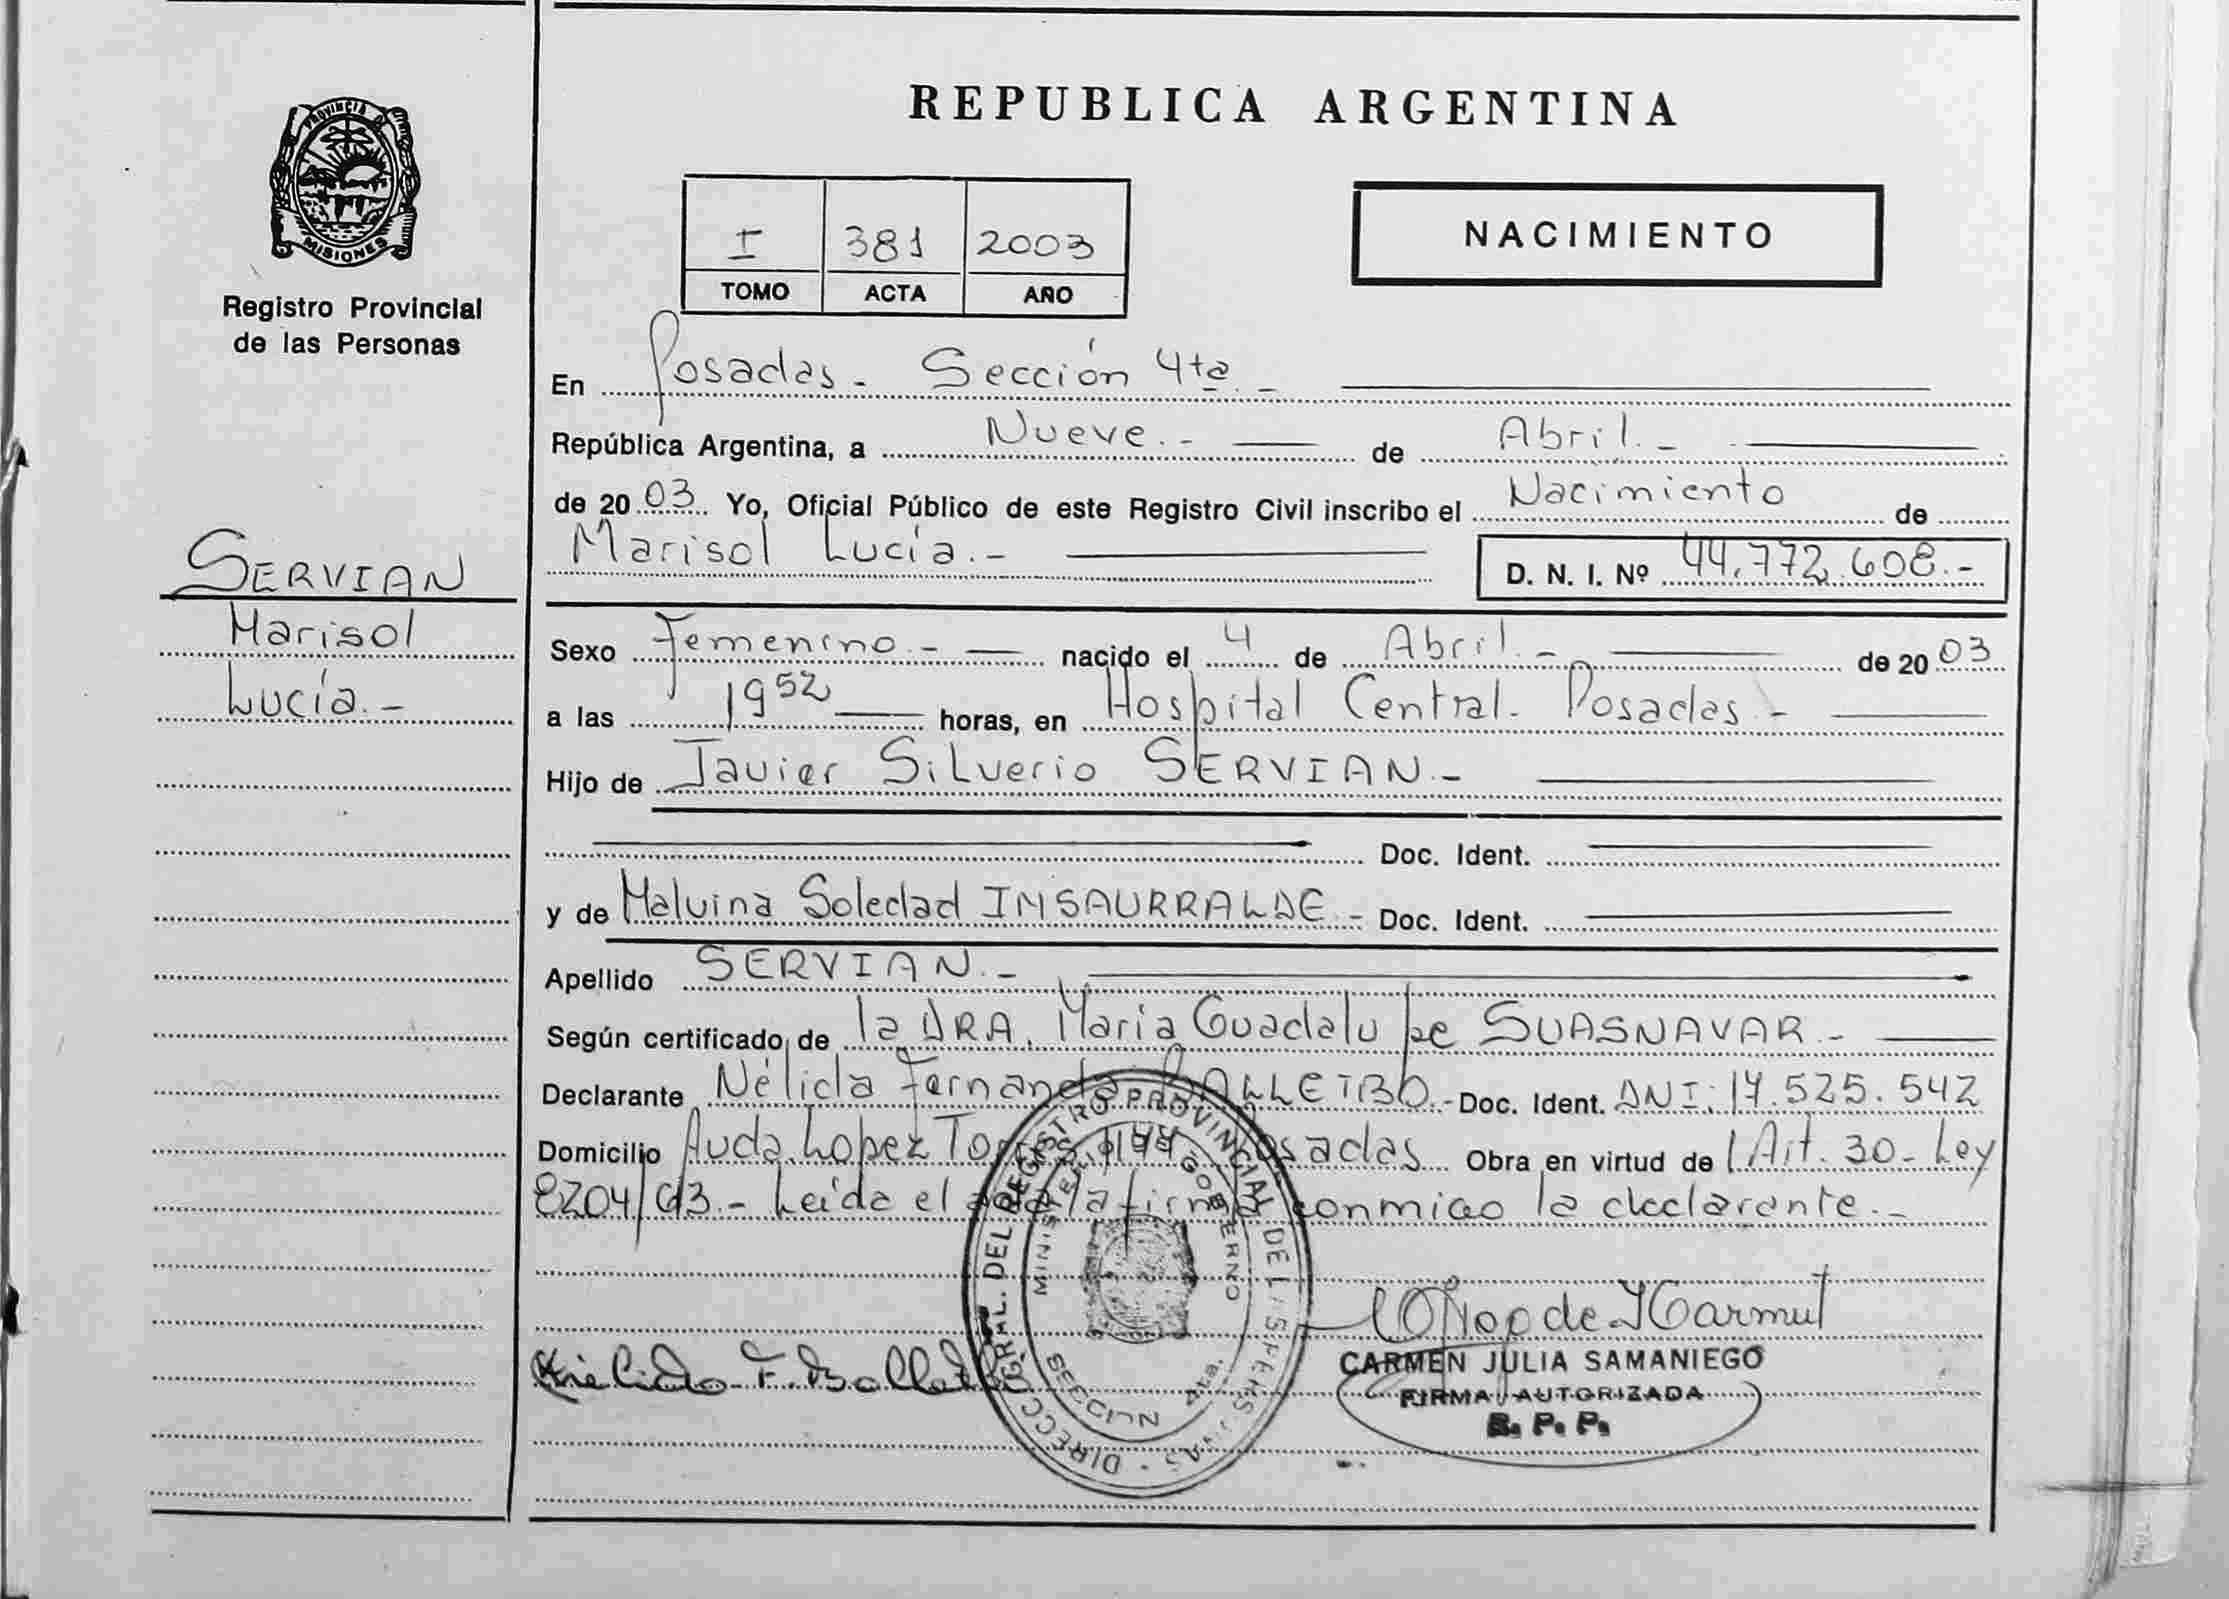 REPUBLICA ARGENTINA
PROVINCIA DE MISIONES
Registro Provincial
de las Personas
I 381 2003
TOMO ACTA AÑO
NACIMIENTO
SERVIAN
Marisol
Lucía.-
En Posadas.- Sección 4ta.-
República Argentina, a Nueve.- de Abril.-
de 2003 Yo, Oficial Público de este Registro Civil inscribo el Nacimiento de
Marisol Lucía.- D. N. I. Nº 44.772.608.-
Sexo Femenino.- nacido el 4 de Abril.- de 2003
a las 19 52 horas, en Hospital Central- Posadas.-
Hijo de Javier Silverio SERVIAN.-
Doc. Ident.
y de Malvina Soledad INSAURRALDE.- Doc. Ident.
Apellido SERVIAN.-
Según certificado de la DRA. María Guadalupe SUASNAVAR.-
Declarante Nélida Fernanda Doc. Ident. DNI: 17.525.542
Domicilio Avda. Lopez Posadas Obra en virtud del Art. 30- Ley
8204/63.- Leída el acta la firma conmigo la declarante.-
DIRECC. GRAL. DEL REGISTRO PROVINCIAL DE LAS PERSONAS
MINISTERIO GOBIERNO
SECCION 4ta.
CARMEN JULIA SAMANIEGO
FIRMA AUTORIZADA
R. P. P.